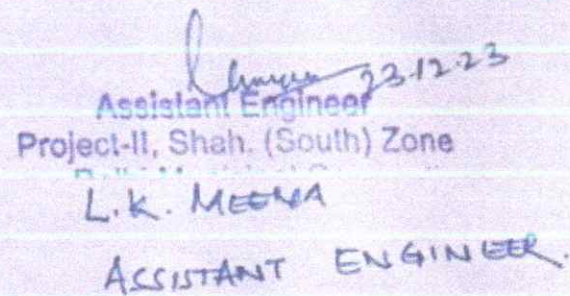 23.12.23
Assistant Engineer
Project-II, Shah. (South) Zone
L.K. MEENA
ASSISTANT ENGINEER.